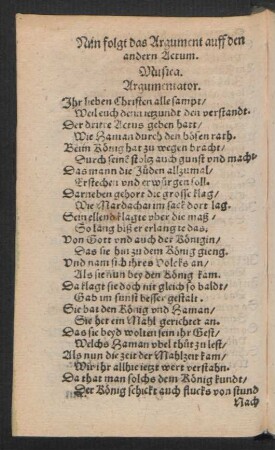 Nun folgt das Argument auff den
andern Actum.
Musica.
Argumentator.
Ihr lieben Christen alle sampt/
Weil euch denn ietzundt den verstandt.
Der dritte Actus geben hatt/
Wie Haman durch den bösen rath.
Beim König hat zu wegen bracht/
Durch seine stoltz auch gunst vnd macht
Das mann die Jüden allzumal/
Erstechen vnd erwürgen soll.
Darneben gehört die grosse klag/
Wie Mardachai im sack dort lag.
Sein ellendt klagte vber die maß/
So lang biß er erlangte das,
Von Gott vnd auch der Königin/
Das sie hin zu dem König gieng.
Vnd nam sich ihres Volcks an/
Als sie nun bey den König kam.
Da klagt sie doch nit gleich so baldt/
Gab im sunst besser gestalt.
Sie bat den König vnd Haman/
Sie het ein Mahl gerichtet an.
Das sie beyd wolten sein ihr Gest/
Welchs Haman vbel thüt zu lest/
Als nun die zeit der Mahlzeit kam/
Wir ihr allhie ietzt wert verstahn.
Da that man solchs dem König kundt/
Der König schickt auch flucks von stund
Nach